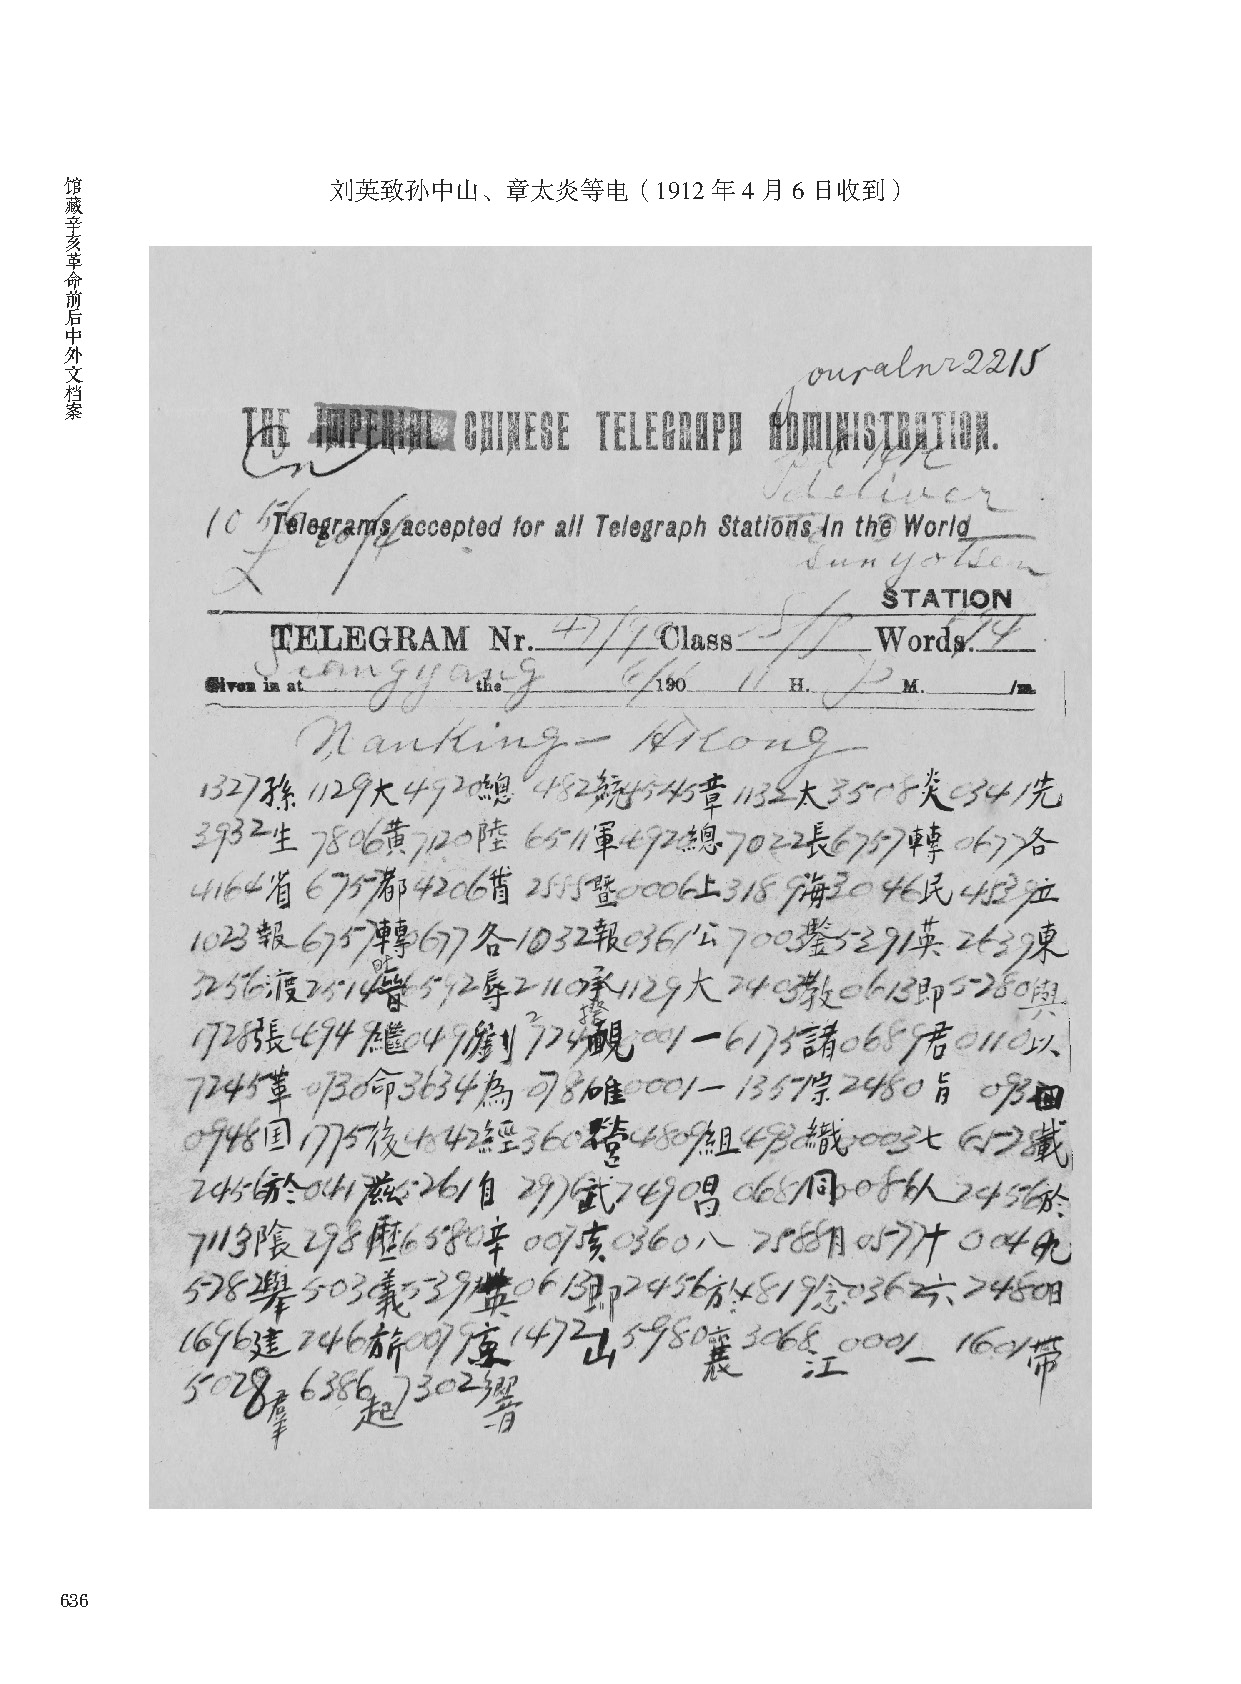 馆藏辛亥革命前后中外文档案
刘英致孙中山、章太炎等电（1912年4月6日收到）
ouralnr2215
THE IMPERIAL CHINESE TELEGRAPH ADMINISTRATION.
deliver
Telegrams accepted for all Telegraph Stations in the World
Sunyatsen
STATION
TELEGRAM Nr. 47/90 Class Words.
Given in at Siangyang the 6/4 190 11 H. M. /m.
Nanking – HKong
1327孫 1129大 4920總 482統 4545章 1132太 3508炎 0341先
3932生 7806黃 7120陸 6511軍 4920總 7022長 6757轉 0677各
4164省 6757都 4206督 2555暨 0006上 3189海 3046民 4539立
1023報 6757轉 0677各 1032報 0361公 7003鑒 5391英 2639東
3256渡 2514 6592辱 2110承 1129大 2403教 0613即 5280與
1728張 4949繼 0491劉 7245 0001一 6175諸 0689君 0110以
7245革 0730命 3634為 0786唯 0001一 1357宗 2480旨 0932
0948国 1775後 4842經 3602營 4809組 4930織 0003七 6528載
2456於 0417茲 5261自 2976武 7490昌 0681同 0086人 2456於
7113陰 298歷 6580辛 0075亥 0360八 2588月 0577十 0046九
5282舉 5030義 5391英 0613即 2456於 4819念 0362六 2480日
1696建 246旂 0079京 1472山 5980襄 3068江 0001一 1601帶
5028羣 6386起 7302響
636